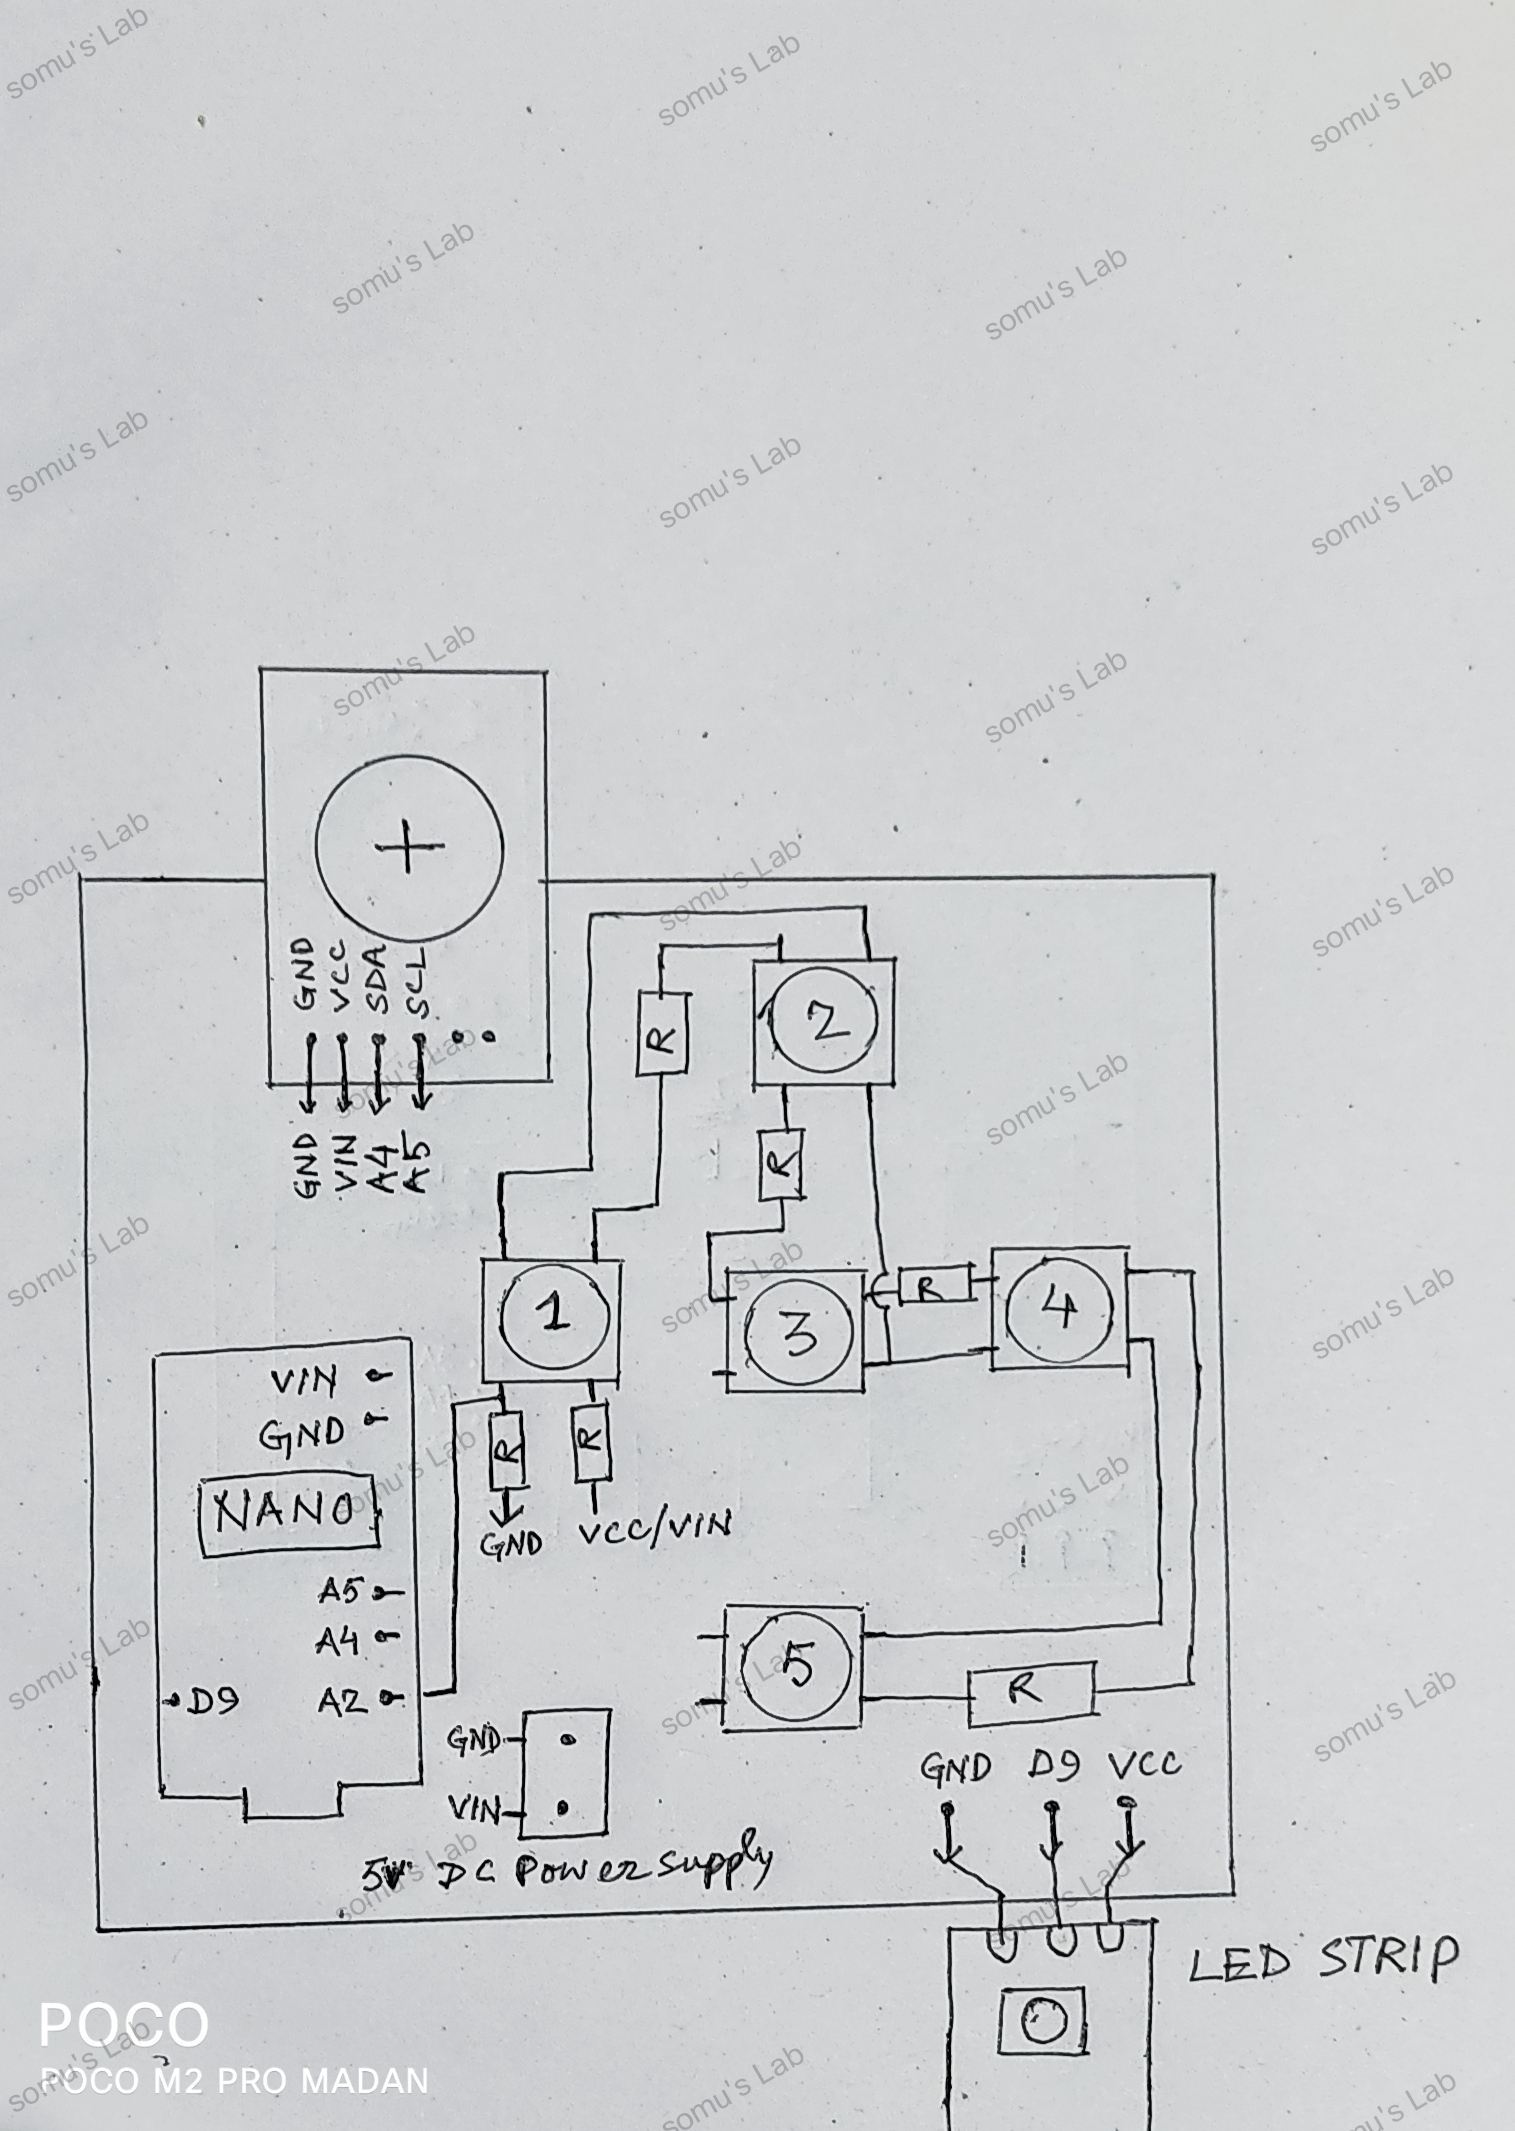 somu's Lab
GND VCC SDA SCL
GND VIN A4 A5
R
2
R
1
3
R
4
R
R
GND
VCC/VIN
VIN
GND
NANO
A5
A4
D9
A2
5
R
GND
VIN
5V DC Power Supply
GND D9 VCC
LED STRIP
POCO
POCO M2 PRO MADAN